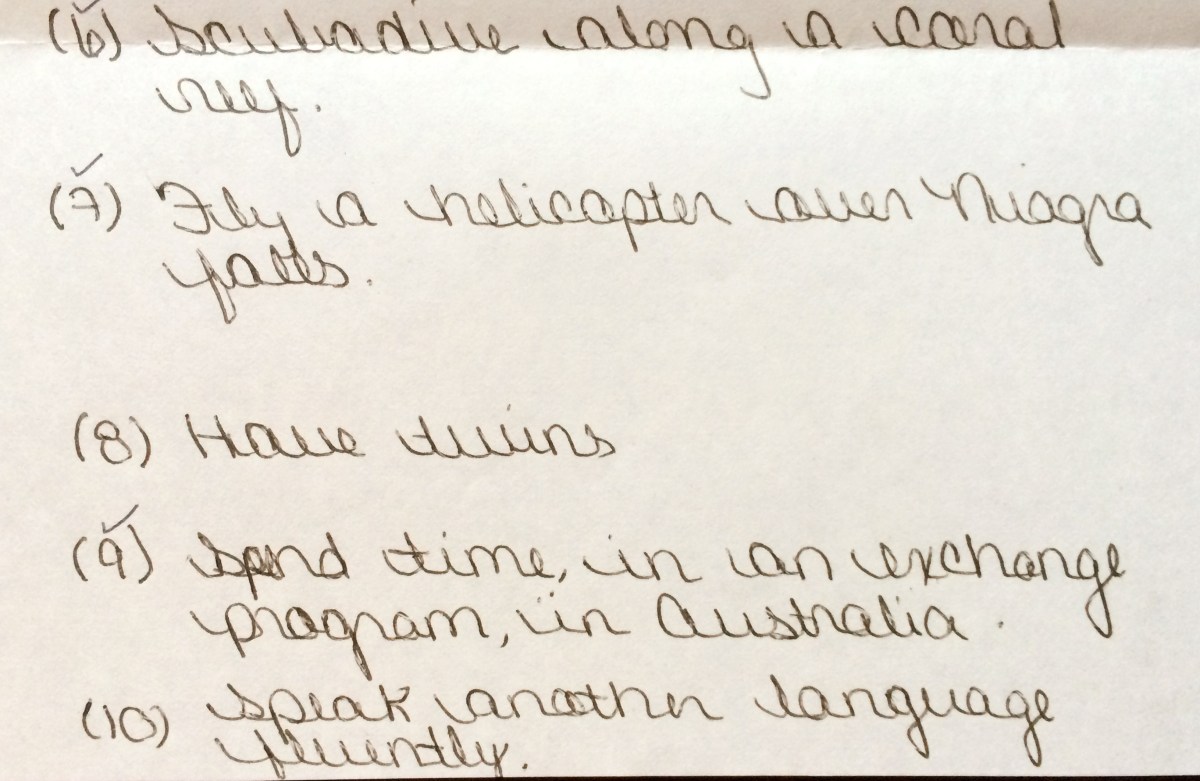 (6) Scubadive along a coral
reef.
(7) Fly a helicopter over Niagra
falls.
(8) Have twins
(9) Spend time, in an exchange
program, in Australia.
(10) Speak another language
fluently.